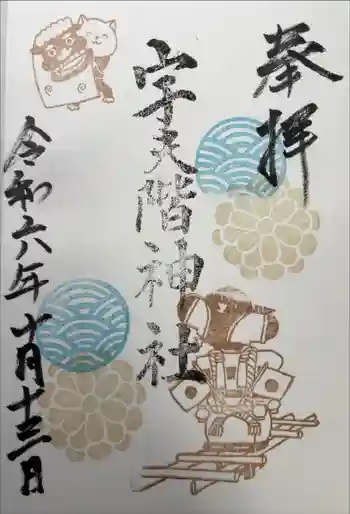 奉拝
宇夫階神社
令和六年十月十三日